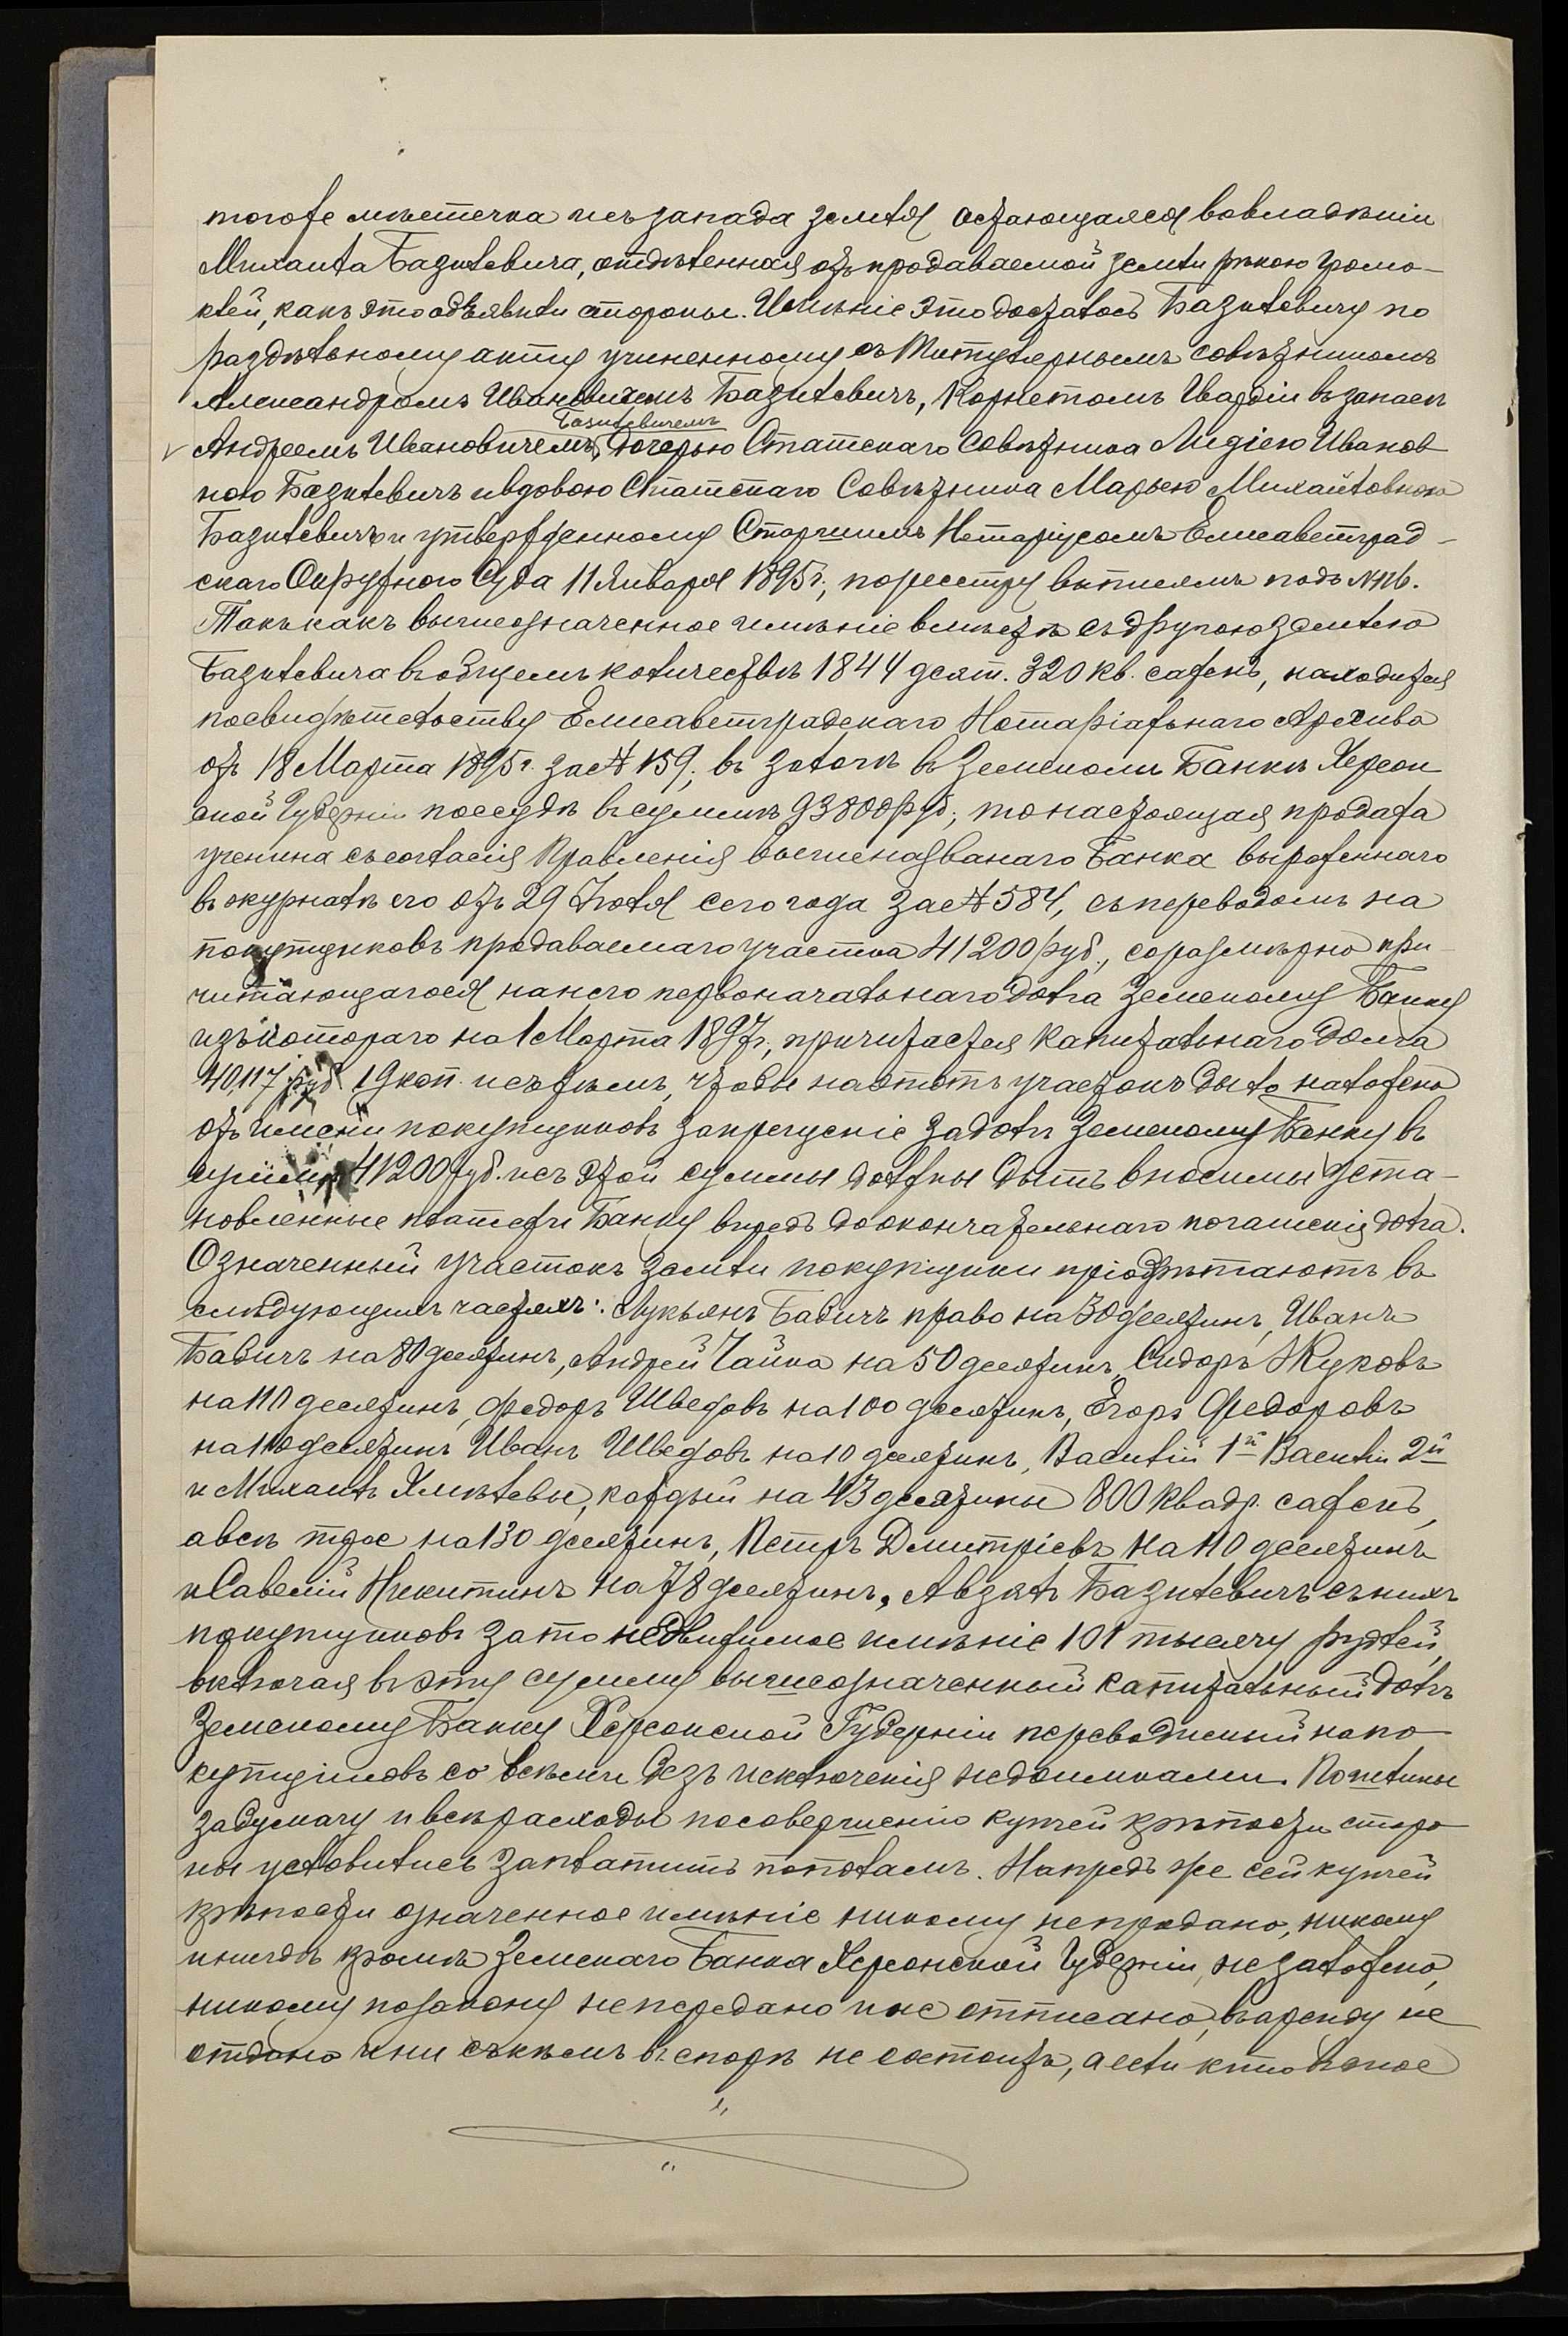 тогоже мѣстечка и съ запада земля остающаяся во владѣніи
Михаила Базилевича, отдѣленная отъ продаваемой земли рѣкою Громо-
клей, какъ это объявили стороны. Имѣніе это досталось Базилевичу по
раздѣльному акту учиненному съ Титулярнымъ Совѣтникомъ
Александромъ Ивановичемъ Базилевичъ, Корнетомъ Гвардіи въ запасѣ
Базилевичемъ
Андреемъ Ивановичемъ, дочерью Статскаго Совѣтника Лидіею Иванов
ною Базилевичъ и вдовою Статскаго Совѣтника Марьею Михайловною
Базилевичъ и утвержденному Старшимъ Нотаріусомъ Елисаветград-
скаго Окружного Суда 11 Января 1895 г., по реестру выписямъ подъ №
Такъ какъ вышеозначенное имѣніе вмѣстѣ съ другою землею
Базилевича въ общемъ количествѣ 1844 десят. 320 кв. сажень, находится
по свидѣтельству Елисаветградскаго Нотаріальнаго Архива
отъ 18 Марта 1895 г. за № 159, въ залогѣ въ Земскомъ Банкѣ Херсон
ской Губерніи по ссудѣ въ суммѣ 93800 руб., то настоящая продажа
учинена съ согласія Правленія вышеназваннаго Банка выраженнаго
въ журналѣ его отъ 29 Іюля сего года за № 584, съ переводомъ на
покупщиковъ продаваемаго участка 41200 руб., соразмѣрно при-
читающагося на него первоначальнаго долга Земскому Банку
изъ котораго на 1 Марта 1897 г., причитается капитальнаго долга
40,117 руб. 19 коп. и съ тѣмъ, чтобы на этотъ участокъ было наложено
отъ имени покупщиковъ запрещеніе за долгъ Земскому Банку въ
суммѣ 41200 руб. и съ этой суммы должны быть вносимы уста-
новленные платежи Банку впредь до окончательнаго погашенія долга.
Означенный участокъ земли покупщики пріобрѣтаютъ въ
слѣдующихъ частяхъ: Лукьянъ Бабичъ право на 30 десятинъ, Иванъ
Бабичъ на 80 десятинъ, Андрей Чайка на 50 десятинъ, Сидоръ Жуковъ
на 110 десятинъ, Федоръ Шведовъ на 100 десятинъ, Егоръ Федоровъ
на 110 десятинъ Иванъ Шведовъ на 10 десятинъ, Василій 1й Василій 2й
и Михаилъ Хмѣлевы, каждый на 43 десятины 800 квадр. сажень,
а всѣ трое на 130 десятинъ, Петръ Дмитріевъ на 110 десятинъ
и Савелій Никитинъ на 78 десятинъ. А взялъ Базилевичъ съ нихъ
покупщиковъ за то недвижимое имѣніе 101 тысячу рублей,
включая въ эту сумму вышеозначенный капитальный долгъ
Земскому Банку Херсонской Губерніи переводимый на по-
купщиковъ со всѣми безъ исключенія недоимками. Пошлины
за бумагу и всѣ расходы по совершенію купчей крѣпости сторо-
ны условились заплатить пополамъ. Напредь же сей купчей
крѣпости означенное имѣніе никому не продано, никому
и нигдѣ кромѣ Земскаго Банка Херсонской Губерніи, не заложено,
никому по закону не передано и не отписано, въ аренду не
отдано и ни съ кѣмъ въ спорѣ не состоитъ, а если кто въ оное